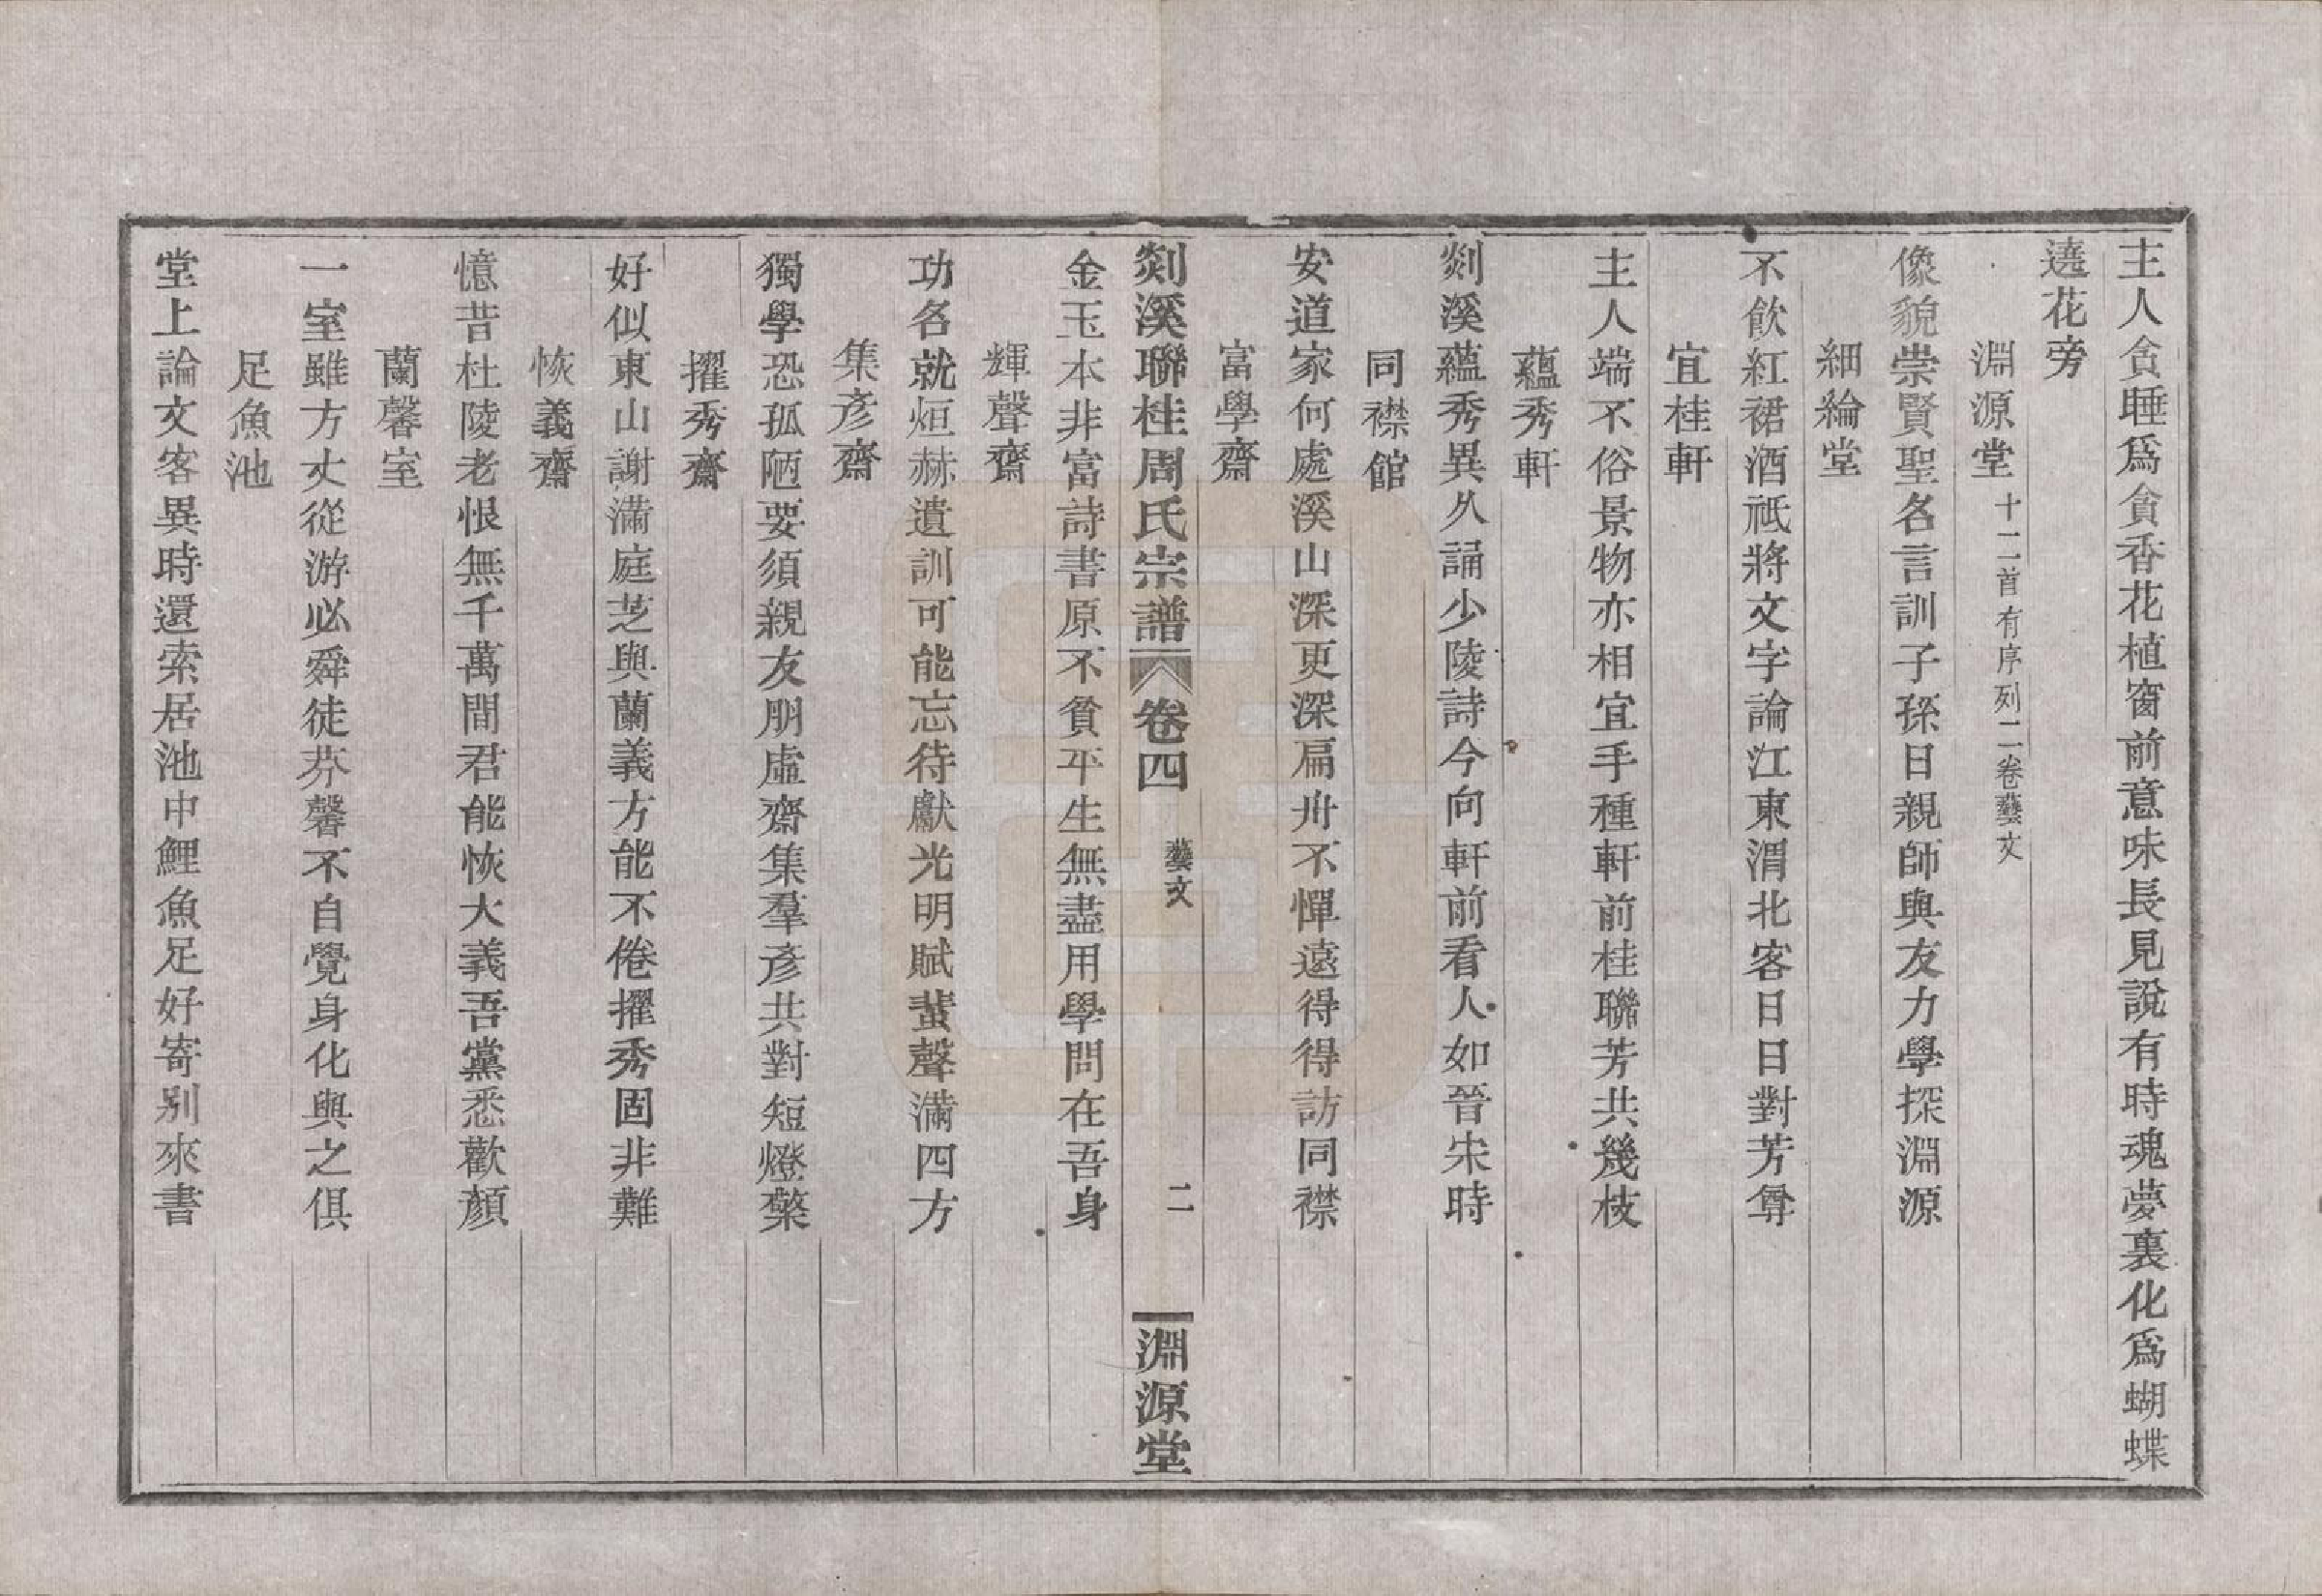 主人貪睡爲貪香花植窗前意味長見說有時魂夢裏化爲蝴蝶
遶花旁
淵源堂十二首有序列二卷藝文
像貌崇賢聖名言訓子孫日親師與友力學探淵源
細綸堂
不飲紅裙酒祇將文字論江東渭北客日日對芳尊
宜桂軒
主人端不俗景物亦相宜手種軒前桂聯芳共幾枝
蘊秀軒
剡溪蘊秀異久誦少陵詩今向軒前看人如晉宋時
同襟館
安道家何處溪山深更深扁舟不憚遠得得訪同襟
富學齋
剡溪聯桂周氏宗譜 卷四 藝文 二 淵源堂
金玉本非富詩書原不貧平生無盡用學問在吾身
輝聲齋
功名就烜赫遺訓可能忘待獻光明賦蜚聲滿四方
集彥齋
獨學恐孤陋要須親友朋虛齋集羣彥共對短燈檠
擢秀齋
好似東山謝滿庭芝與蘭義方能不倦擢秀固非難
恢義齋
憶昔杜陵老恨無千萬間君能恢大義吾黨悉歡顏
蘭馨室
一室雖方丈從游必舜徒芬馨不自覺身化與之俱
足魚池
堂上論文客異時還索居池中鯉魚足好寄別來書